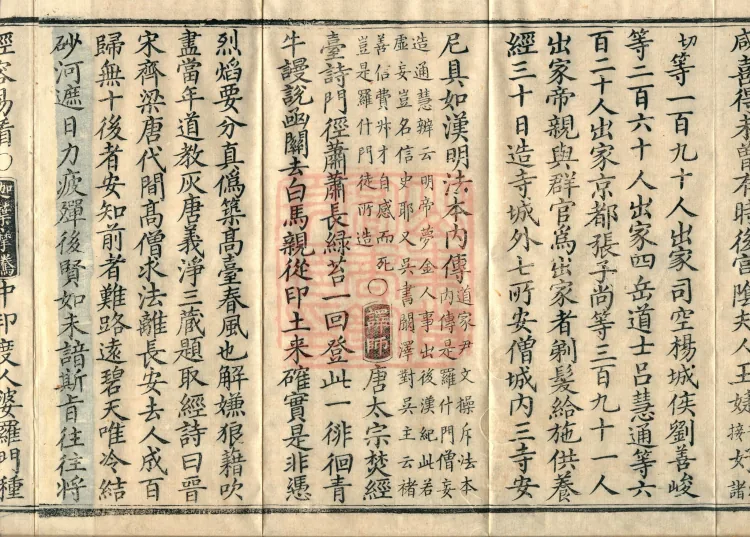 咸喜得未曾有時後宮陰夫人王婕
切等一百九十人出家司空楊城侯劉善峻
等二百六十人出家四岳道士呂慧通等六
百二十人出家京都張子尚等三百九十一人
出家帝親與群官爲出家者剃髮給施供養
經三十日造寺城外七所安僧城內三寺安
尼具如漢明法本內傳
道家尹文操斥法本
內傳是羅什門僧妄
造通慧辨云明帝夢金人事出後漢紀此若
虛妄豈名信史耶又吳書闞澤對吳主云褚
善信費叔才自感而死
豈是羅什門徒所造
○唐太宗焚經
臺詩門徑蕭蕭長綠苔一回登此一徘徊青
牛謾說函關去白馬親從印土来確實是非憑
烈焰要分真僞築高臺春風也解嫌狼藉吹
盡當年道教灰唐義淨三藏題取經詩曰晉
宋齊梁唐代間髙僧求法離長安去人成百
歸無十後者安知前者難路遠碧天唯冷結
砂河遮日力疲殫後賢如未諳斯旨往往將
經容易看○迦葉摩騰中印度人婆羅門種